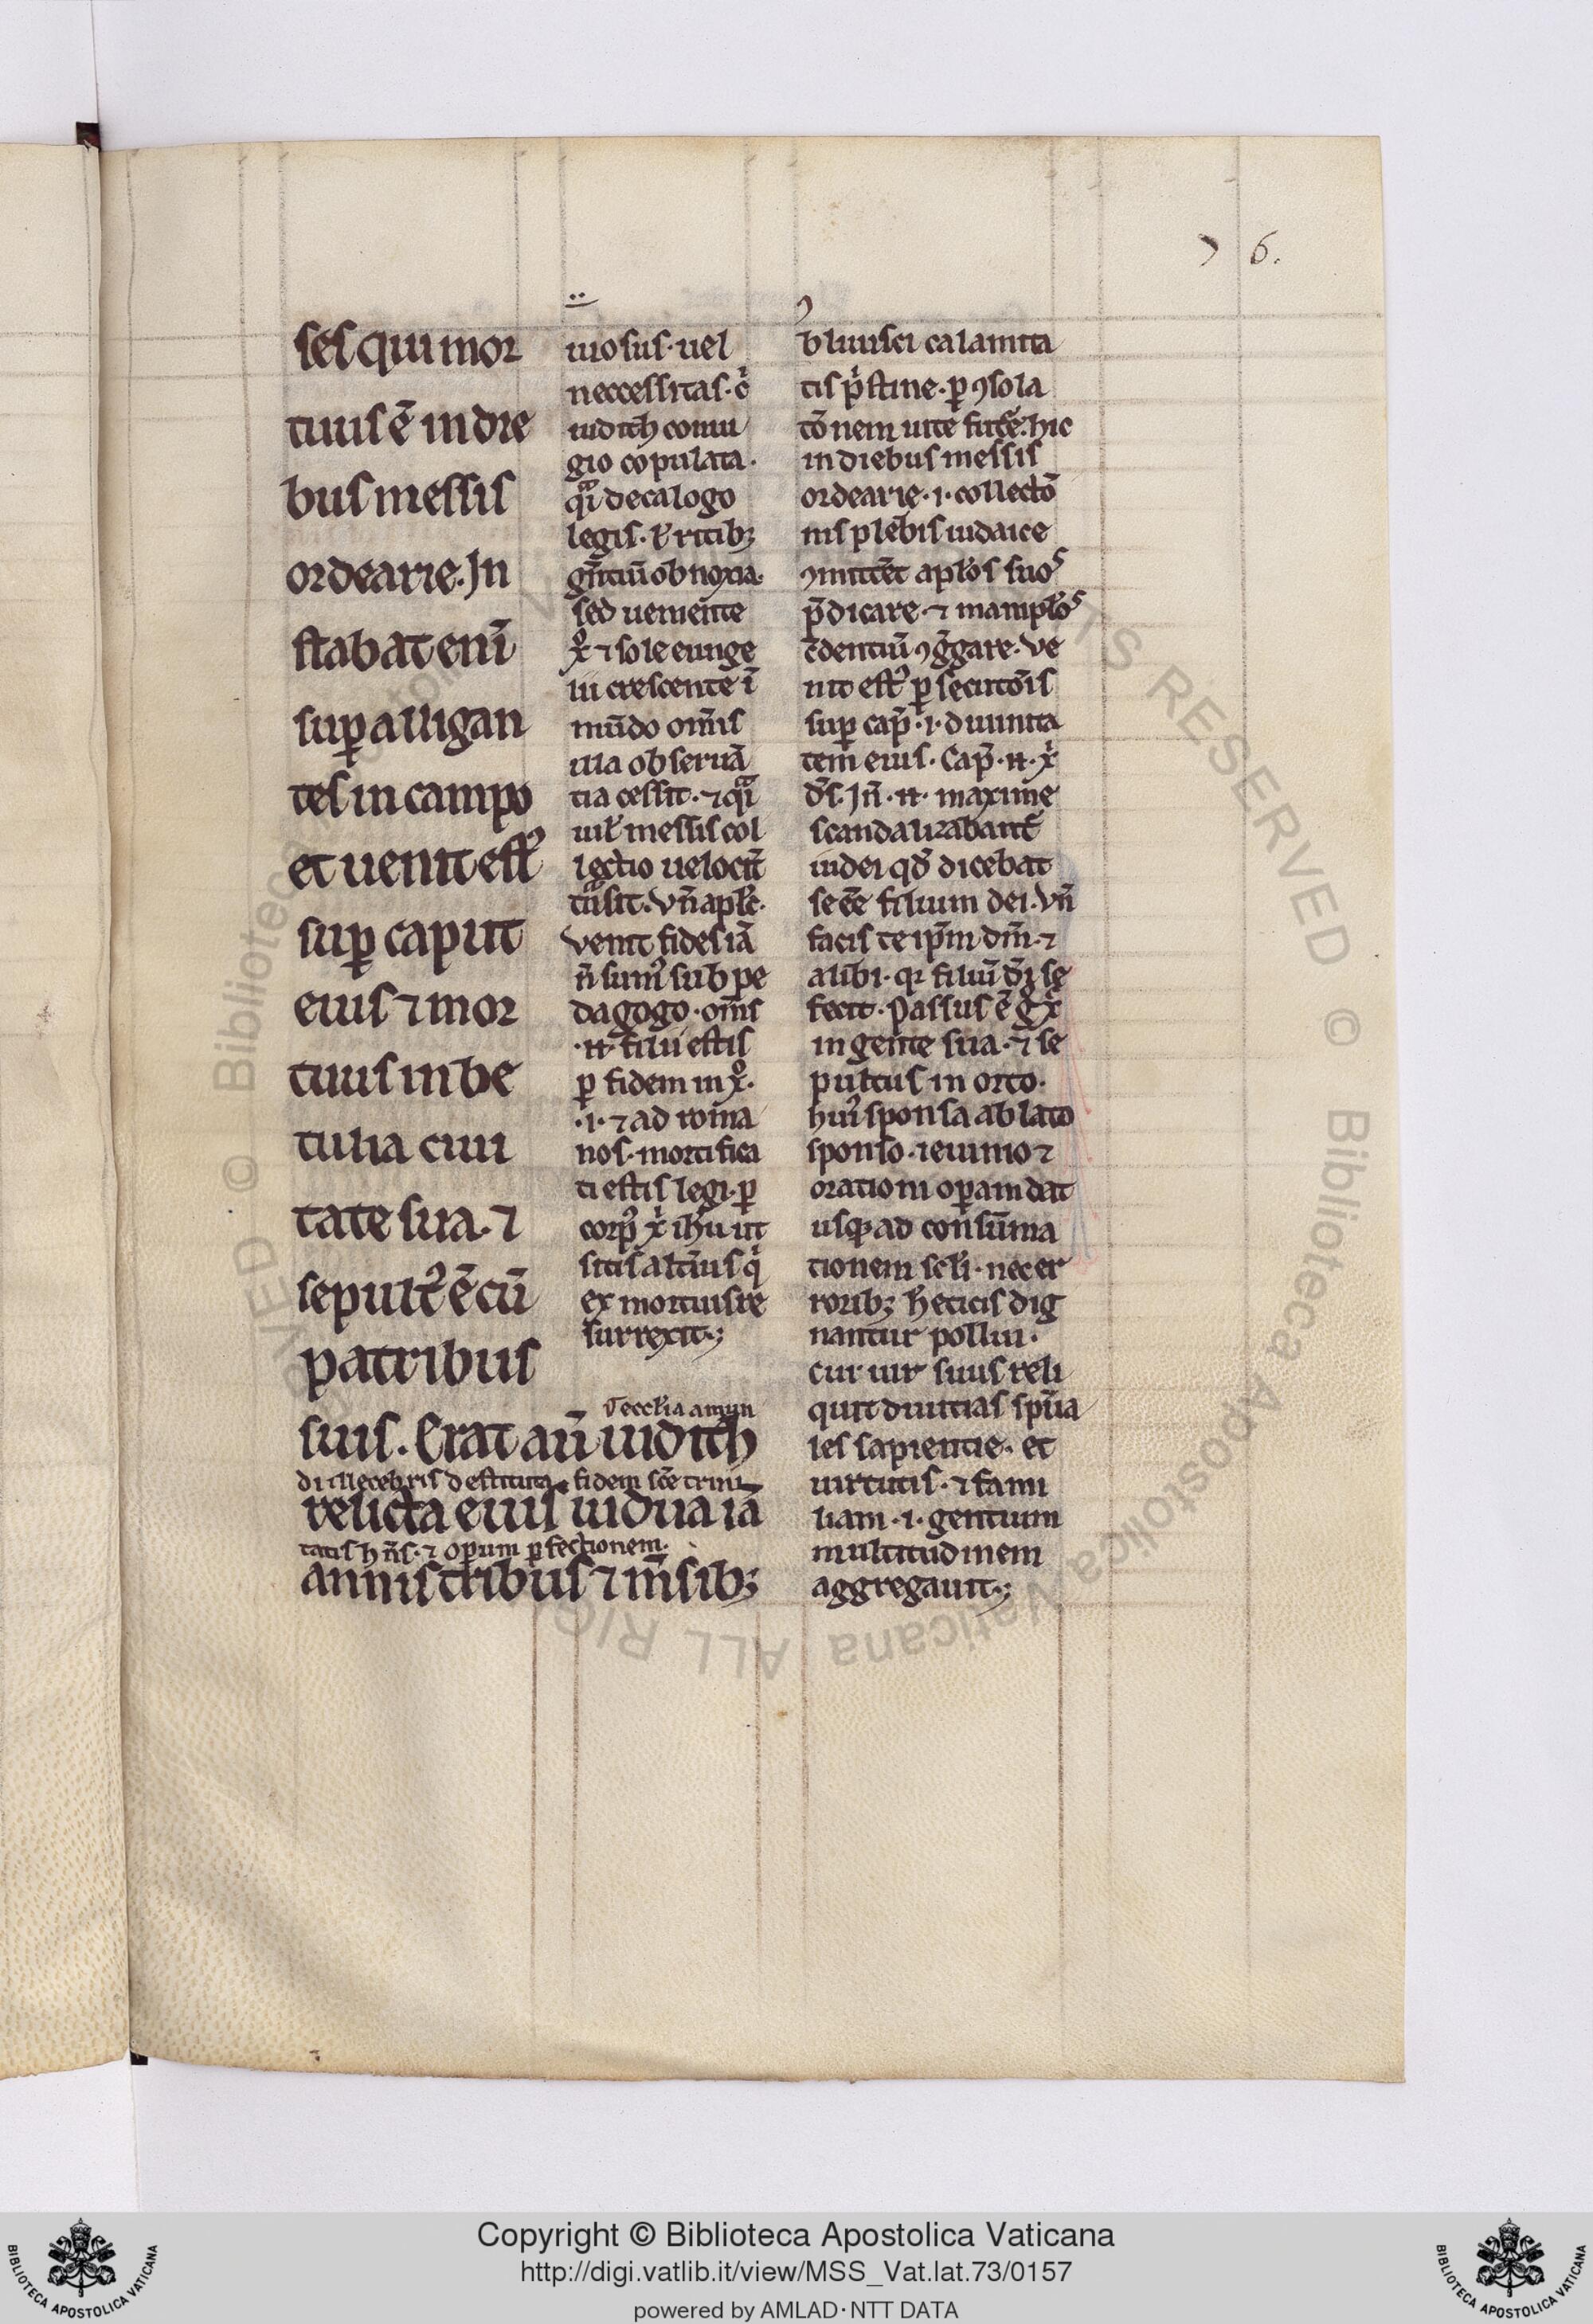 76.
seſ qui mor
tuuſ ē in die
buſ meſſiſ
ordearie. Jn
ſtabat eni̅
ſuꝑ alligan
teſ in campo
et uenit eſtꝰ
ſuꝑ caput
eiuſ ⁊ mor
tuuſ in be
tulia ciui
tate ſua. ⁊
ſepultꝰ ē cū
patribuſ
ſuiſ. Erat aū iudith
relicta eiuſ uidua iā
anniſ tribuſ ⁊ m̅ſibꝫ
uioſuſ. uel
neceſſitaſ.
iudith coniu
gio copulata.
decalogo
legiſ. ritibꝫ
gn̅tiū obnoxia.
ſed ueniente
xͦ ⁊ ſole euuge
lii creſcente ī
mūdo om̅iſ
illa obſeruā
tia ceſſit.
meſſiſ col
lectio uelocit̅
Vn̅ apl̅ſ.
Venit fideſ iā
n̅ ſumꝰ ſub pe
dagogo. om̅ſ
.n̅. filii eſtiſ
ꝑ fidem in xͦ.
.i. ⁊ ad roma
noſ. mortifica
ti eſtiſ legi. ꝑ
corpꝰ xͥ ih̅u ut
ſitiſ alt̅iuſ qͥ
ex mortuiſ re
ſurrexit.;
eccl̅ia a mun
di illecebriſ deſtituta. fidem ſcē trini
tatiſ h̅n̅ſ. ⁊ oꝑum ꝑfectionem.
bliuiſci calamita
tiſ pͥſtine. ꝑ ꝯſola
tōnem uite hic
in diebuſ meſſiſ
ordearie .i. collectō
niſ plebiſ iudaice
ꝯmittēt apl̅oſ ſuoſ
p̅dicare. ⁊ manipl̅oſ
c̅dentiū ꝯg̅gare. Ve
nit eſtꝰ ꝑſecutōiſ
ſuꝑ cap̅ .i. diuinita
tem eiuſ. Cap̅ .n̅. xͥ
d̅ſ. Jn̅ .n̅. maxime
ſcandalizabant᷑
iudei qd̅ dicebat
ſe eē filium dei. Vn̅
faciſ te ip̅m dm̅. ⁊
alibi. qꝛ filiū d̅i ſe
fecit. Paſſuſ ē gͦ xͥ
in gente ſua. ⁊ ſe
pultuſ in orto.
huiꝰ ſponſa ablato
ſponſo. ieiunio ⁊
orationi oꝑam dat
uſqꝫ ad conſūma
tionem ſcl̅i. nec er
roribꝫ h̅eticiſ dig
nantur pollui.
cur uir ſuuſ reli
quit diuitiaſ ſpūa
leſ ſapientie. et
uirtutiſ. ⁊ fami
liam .i. gentium
multitudinem
aggregauit.;
Copyright © Biblioteca Apostolica Vaticana
http://digi.vatlib.it/view/MSS_Vat.lat.73/0157
powered by AMLAD·NTT DATA
BIBLIOTECA APOSTOLICA VATICANA
BIBLIOTECA APOSTOLICA VATICANA